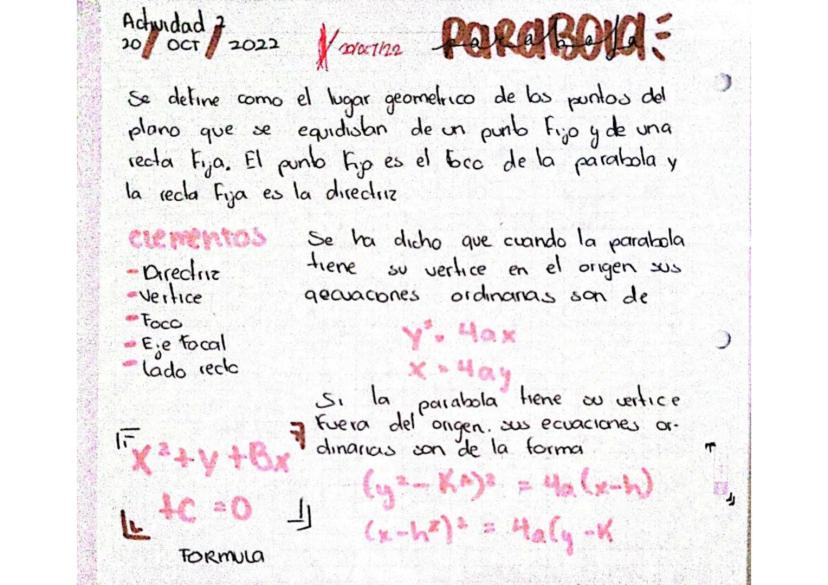 Actividad 2
20/OCT/2022
20/OCT/22
PARABOLA
parabola
Se define como el lugar geometrico de los puntos del
plano que se equidistan de un punto Fijo y de una
recta Fija. El punto Fijo es el foco de la parabola y
la recta Fija es la directriz
elementos
- Directriz
- Vertice
- Foco
- Eje focal
- lado recto
Se ha dicho que cuando la parabola
tiene su vertice en el origen sus
qecuaciones ordinarias son de
y² = 4ax
x = 4ay
Si la parabola tiene su vertice
Fuera del origen. sus ecuaciones or-
dinarias son de la forma
(y² - K²)² = 4a(x-h)
(x-h²)² = 4a(y-K
x²+y+Bx
+C=0
FORMULA